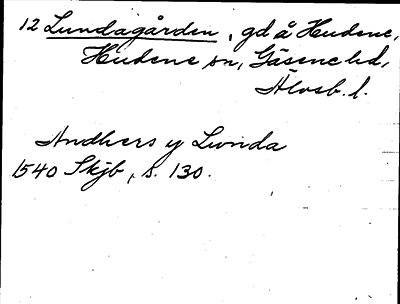 12 Lundagården, gd å Hudene,
Hudene sn, Gäsene hd,
Älvsb. l.
Andhers y Lwnda
1540 Skjb, s. 130.